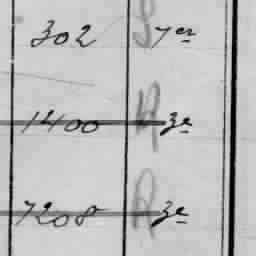 302 7er
1400 3e
7208 3e